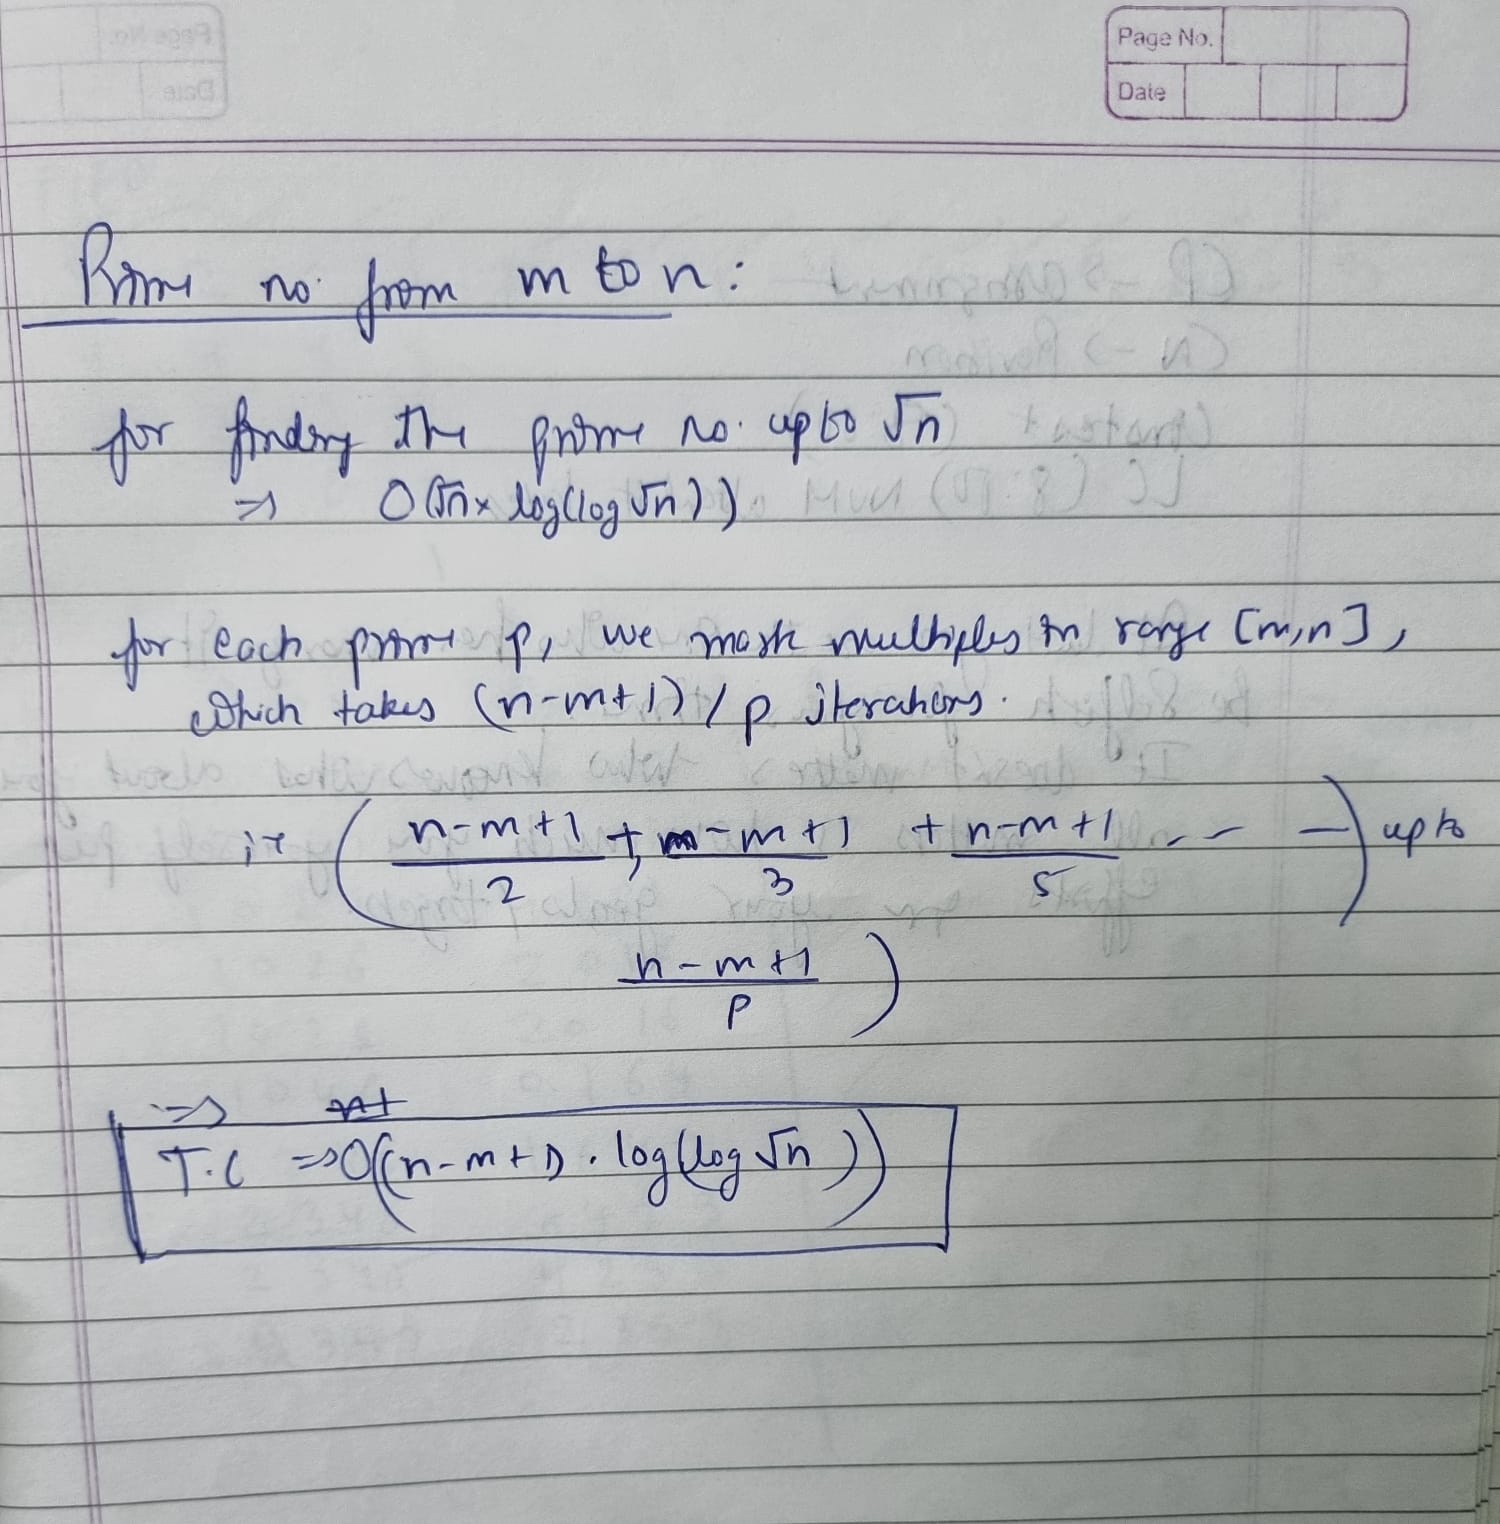 Page No.
Date
Prime no. from m to n:
for finding the prime no. upto √n
=> O(√n x log(log √n))
for each prime p, we mark multiples in range [m,n],
which takes (n-m+1)/p iterations.
ie ( n-m+1/2 + m-m+1/3 + n-m+1/5 - - - ) upto
n-m+1/p )
=>
T.C => O((n-m+1) . log(log √n))